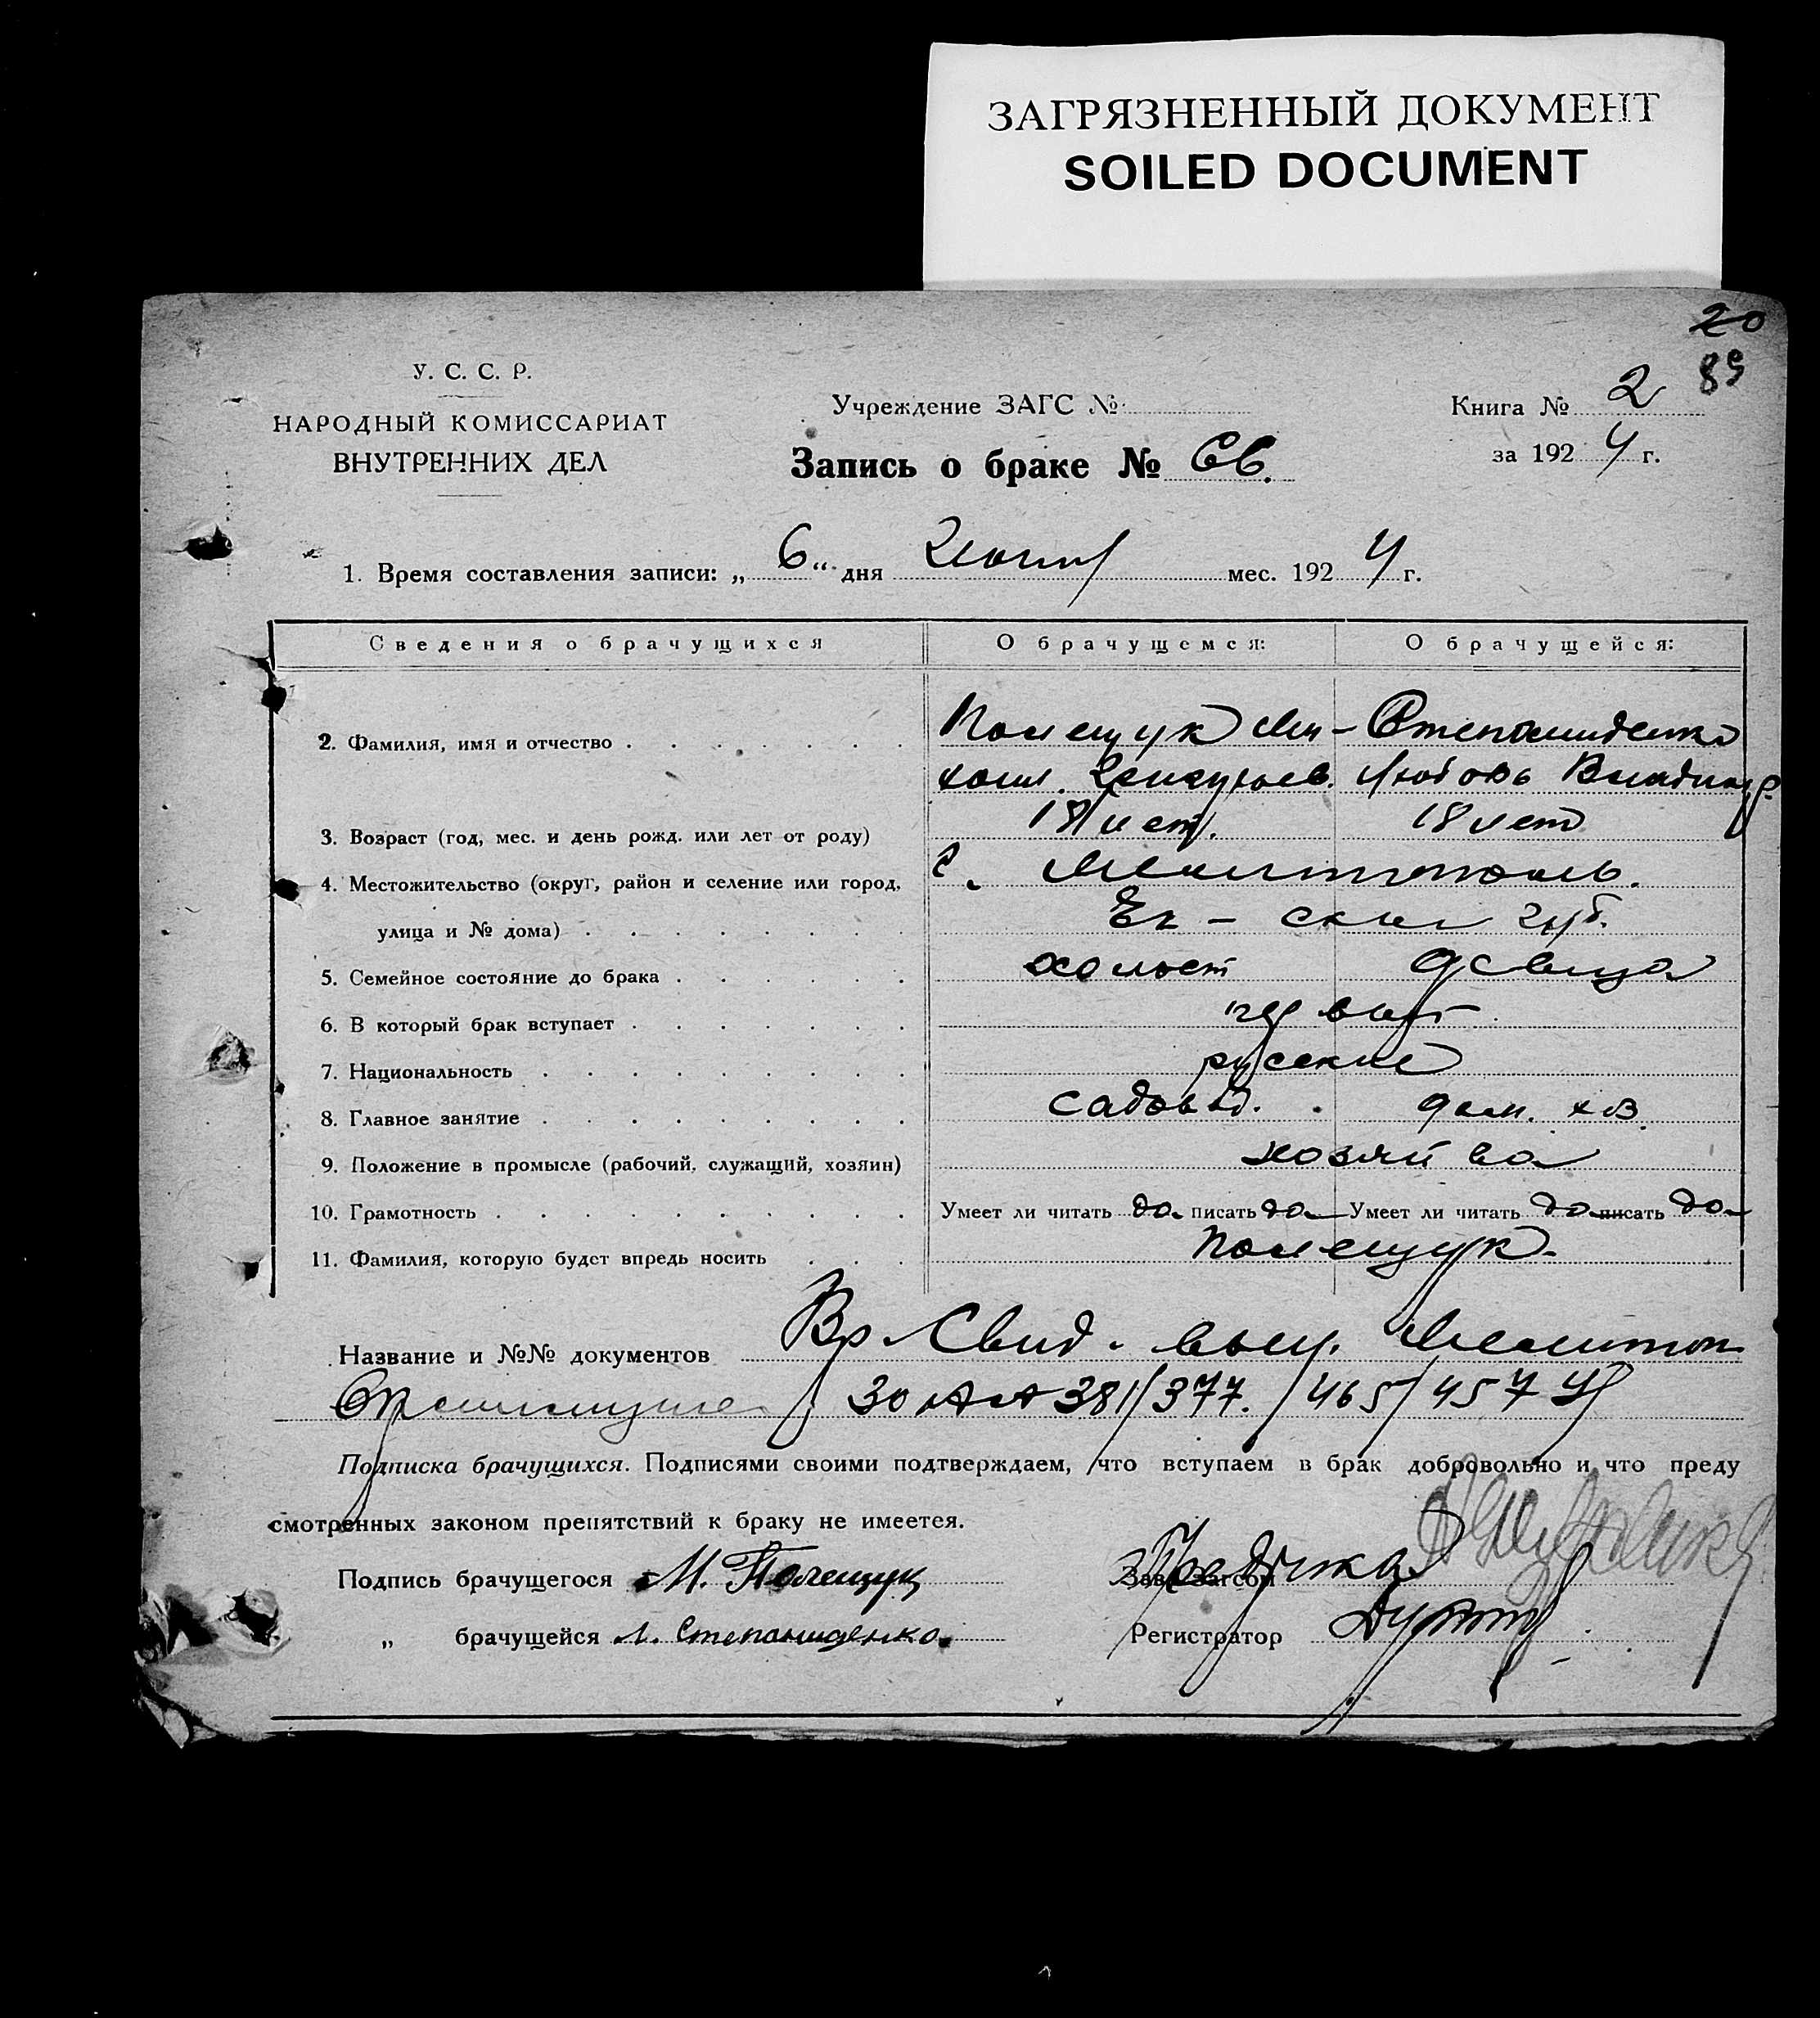 ЗАГРЯЗНЕННЫЙ ДОКУМЕНТ
SOILED DOCUMENT
20
89
У. С. С. Р.
НАРОДНЫЙ КОМИССАРИАТ
ВНУТРЕННИХ ДЕЛ
Учреждение ЗАГС №
Запись о браке № 66.
Книга № 2
за 1924 г.
1. Время составления записи: „ 6 “ дня мес. 1924 г.
Сведения о брачущихся О брачущемся: О брачущейся:
2. Фамилия, имя и отчество Полещук Ми- Степаниденко
хаил Любовь Владимир.
3. Возраст (год, мес. и день рожд. или лет от роду) 18 лет. 18 лет
4. Местожительство (округ, район и селение или город, г. Мелитополь.
улица и № дома) Ек - ской губ.
5. Семейное состояние до брака холост девица
6. В который брак вступает первый
7. Национальность русские
8. Главное занятие садовод. дом. хоз.
9. Положение в промысле (рабочий, служащий, хозяин) хозяйва
10. Грамотность Умеет ли читать да писать да Умеет ли читать да писать да
11. Фамилия, которую будет впредь носить Полещук.
Название и №№ документов Вр. Свид. выд. Мелитоп.
30 АА 381/377. /465/457
Подписка брачущихся. Подписями своими подтверждаем, что вступаем в брак добровольно и что преду
смотренных законом препятствий к браку не имеется.
Подпись брачущегося М. Полещук Зав. Загсом
„ брачущейся Л. Степаниденко. Регистратор